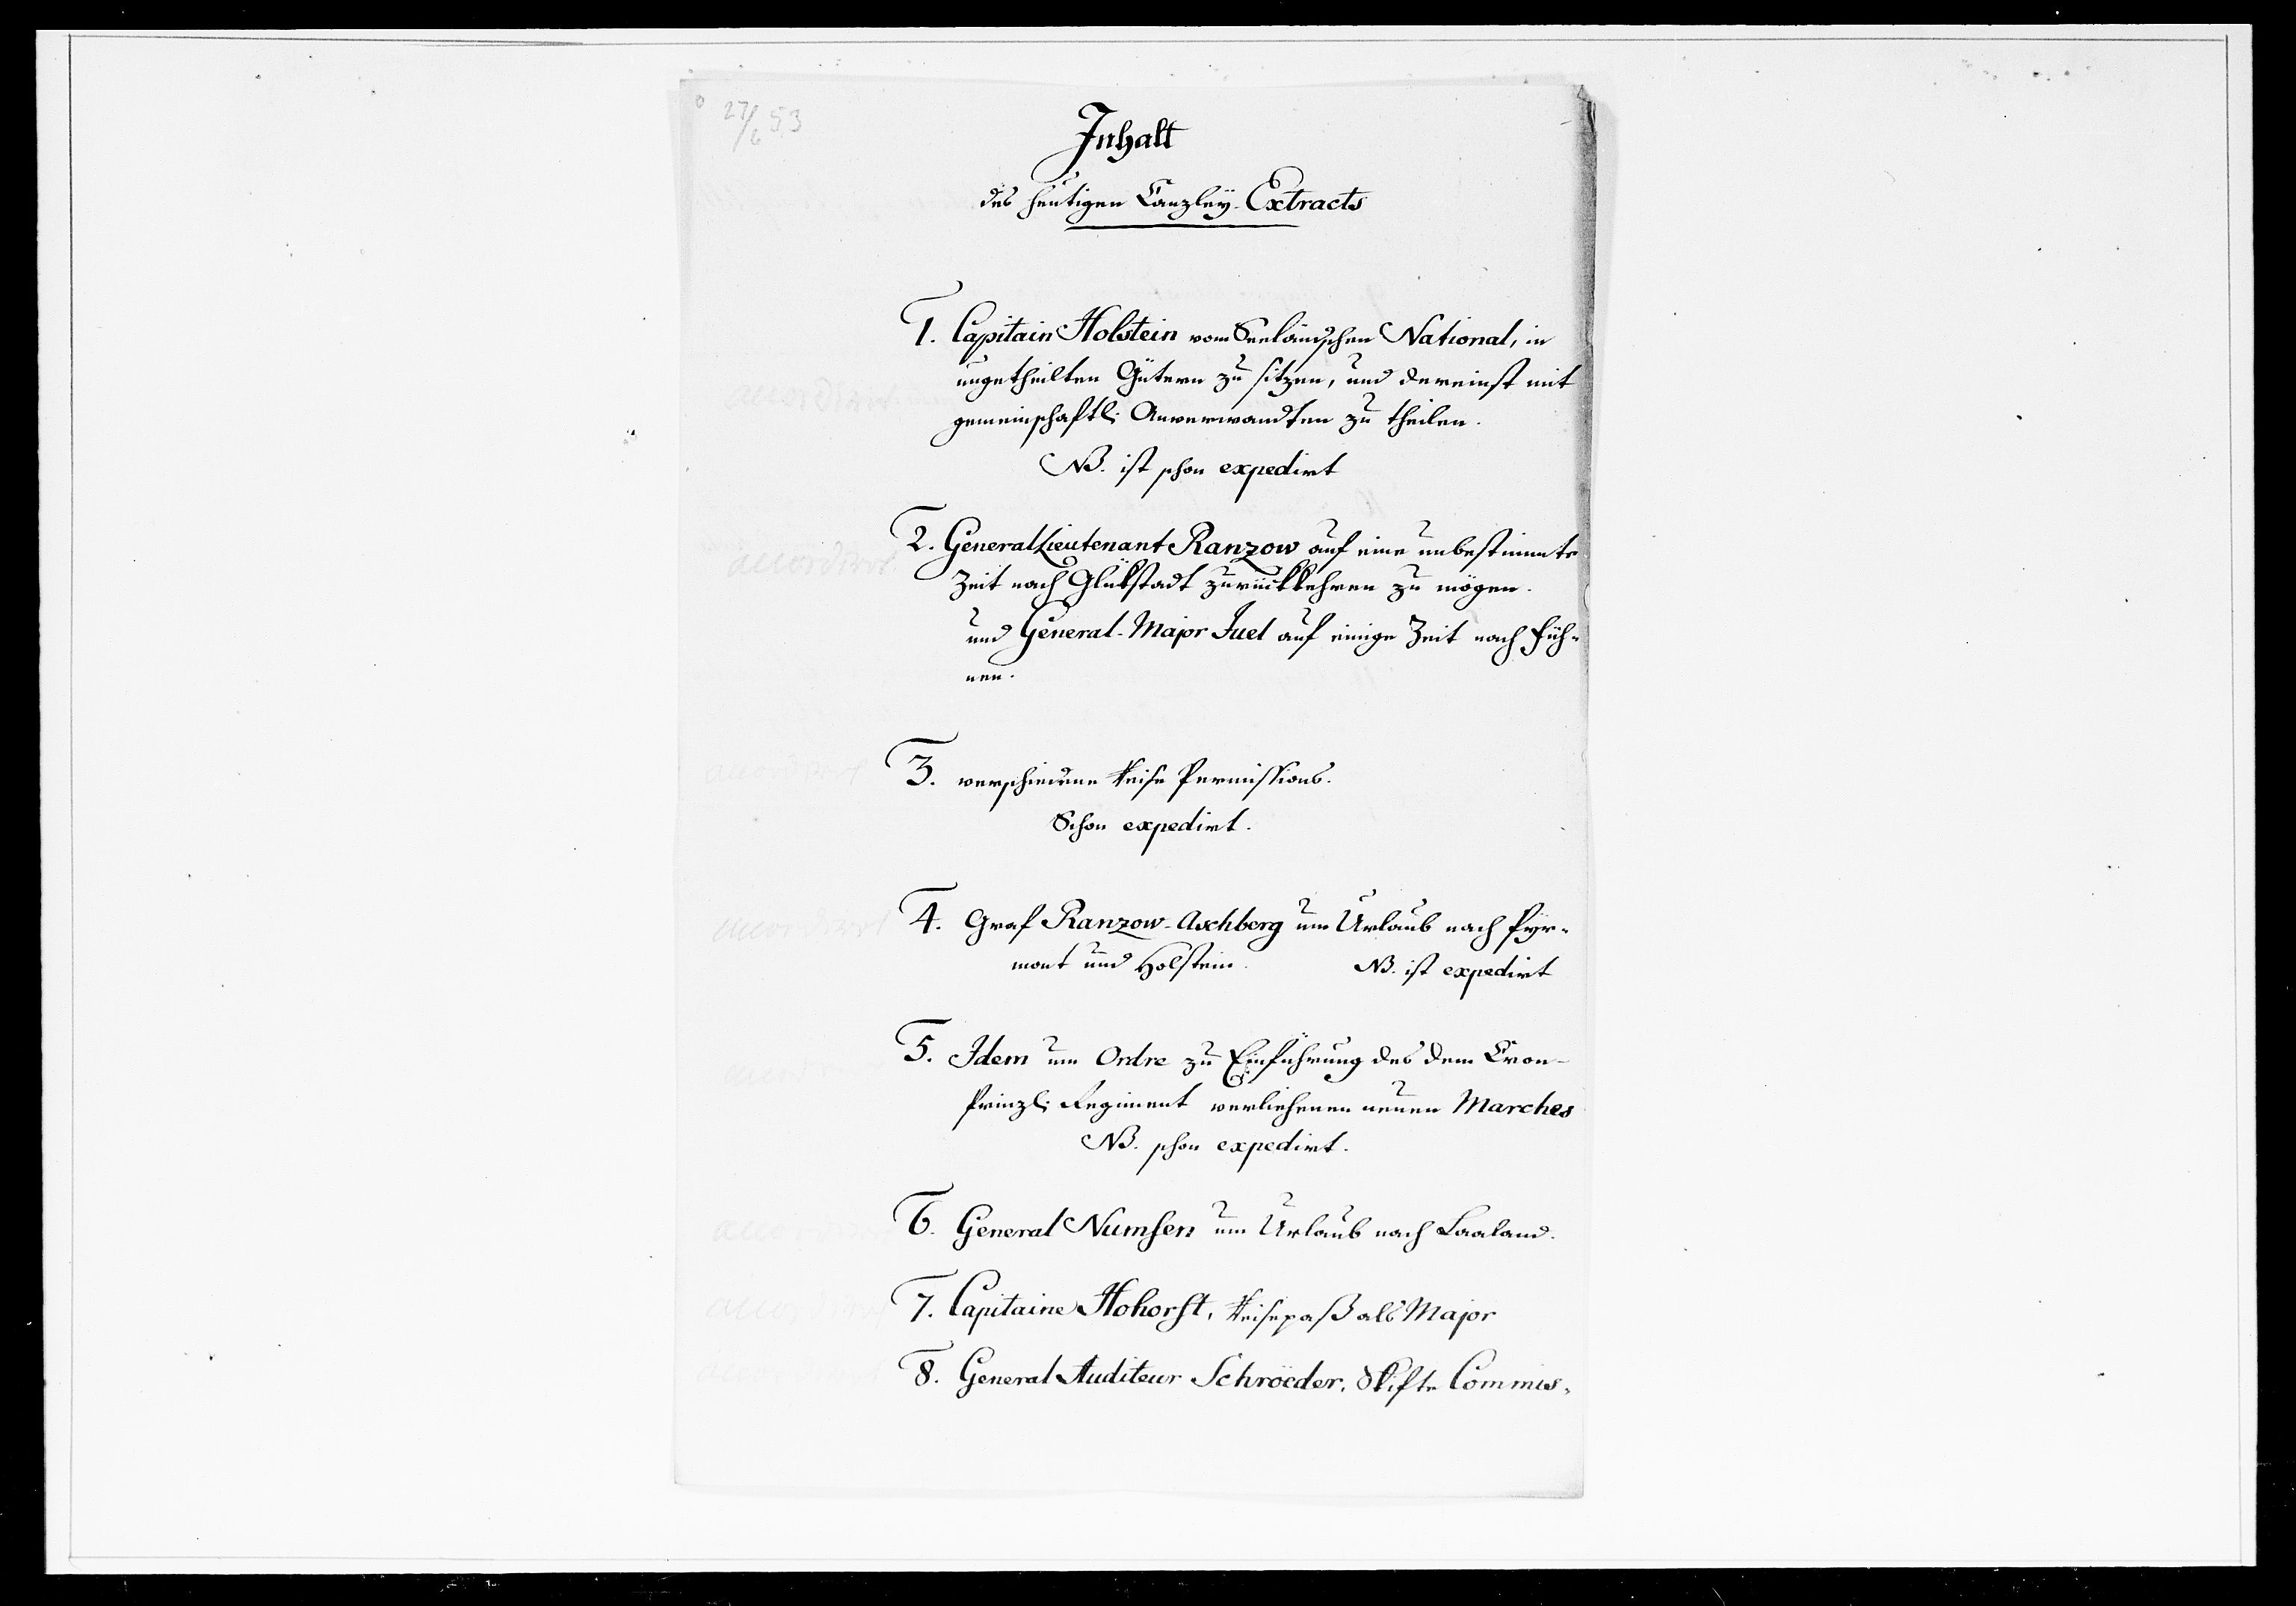 27/6 53
Inhalt
des heutigen Canzley-Extracts
1. Capitain Holstein vom Seeländschen National, in
ungetheilten Gütern zu sitzen, und dereinst mit
gemeinschaftl: Anverwandten zu theilen.
NB. ist schon expedirt
accordirt
2. GeneralLieutenant Ranzow auf eine unbestimmte
Zeit nach Glükstadt zurückkehren zu mögen.
und General-Major Juel auf einige Zeit nach Füh-
nen.
accordirt
3. verschiedene Reise Permissions.
Schon expedirt.
accordirt
4. Graf Ranzow-Aschberg um Urlaub nach Pyr-
mont und Holstein. NB. ist expedirt
accordirt
5. Idem um Ordre zu Einführung des dem Cron-
Prinzl: Regiment verliehenen neuen Marches
NB. schon expedirt.
accordirt
6. General Numsen um Urlaub nach Laaland.
accordirt
7. Capitaine Hohorst, Reisepaß als Major
accordirt
8. General Auditeur Schröeder, Skifte Commis-
accordirt